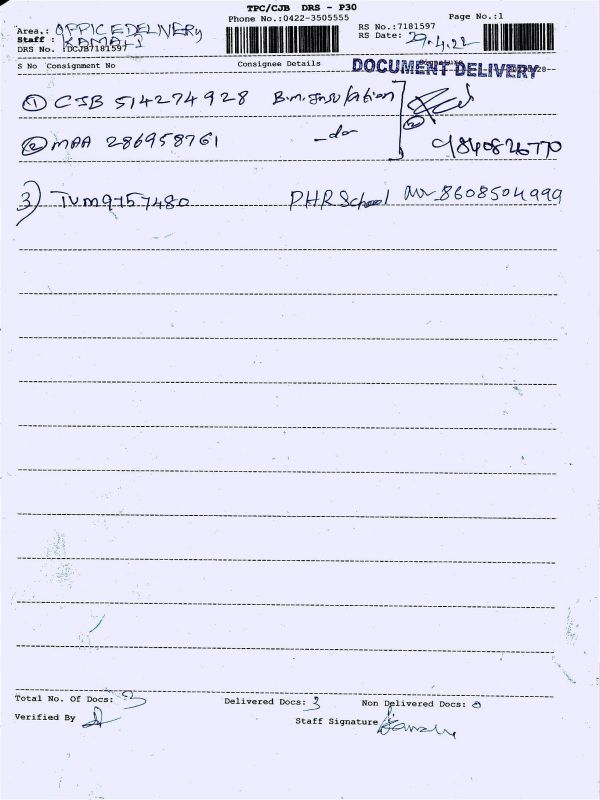 TPC/CJB DRS - P30
Phone No.:0422-3505555
Page No.:1
Area.: OFFICE DELIVERY
RS No.:7181597
Staff : KAMALI
RS Date: 29.4.22
DRS No. :DCJB7181597
S No Consignment No Consignee Details
DOCUMENT DELIVERY
① CJB 514274928
② MAA 286958761 -do- 9840826770
3) TVM9757480 PHR School 8608504999
Total No. Of Docs: 3 Delivered Docs: 3 Non Delivered Docs: 0
Verified By
Staff Signature